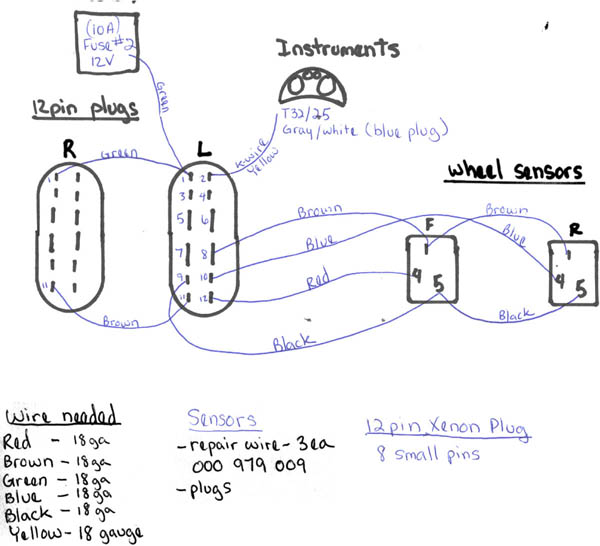 (10A)
Fuse #2
12V
Instruments
Green
12pin plugs
T32/25
Gray/white (blue plug)
K-wire
Yellow
R
L
Green
wheel sensors
1
1
2
3
4
5
6
7
8
9
10
11
11
12
Brown
Brown
F
R
Blue
Blue
Red
4
5
4
5
Brown
Black
Black
Wire needed
Red - 18ga
Brown - 18ga
Green - 18ga
Blue - 18ga
Black - 18ga
Yellow - 18 gauge
Sensors
- repair wire - 3ea
000 979 009
- plugs
12pin Xenon Plug
8 small pins